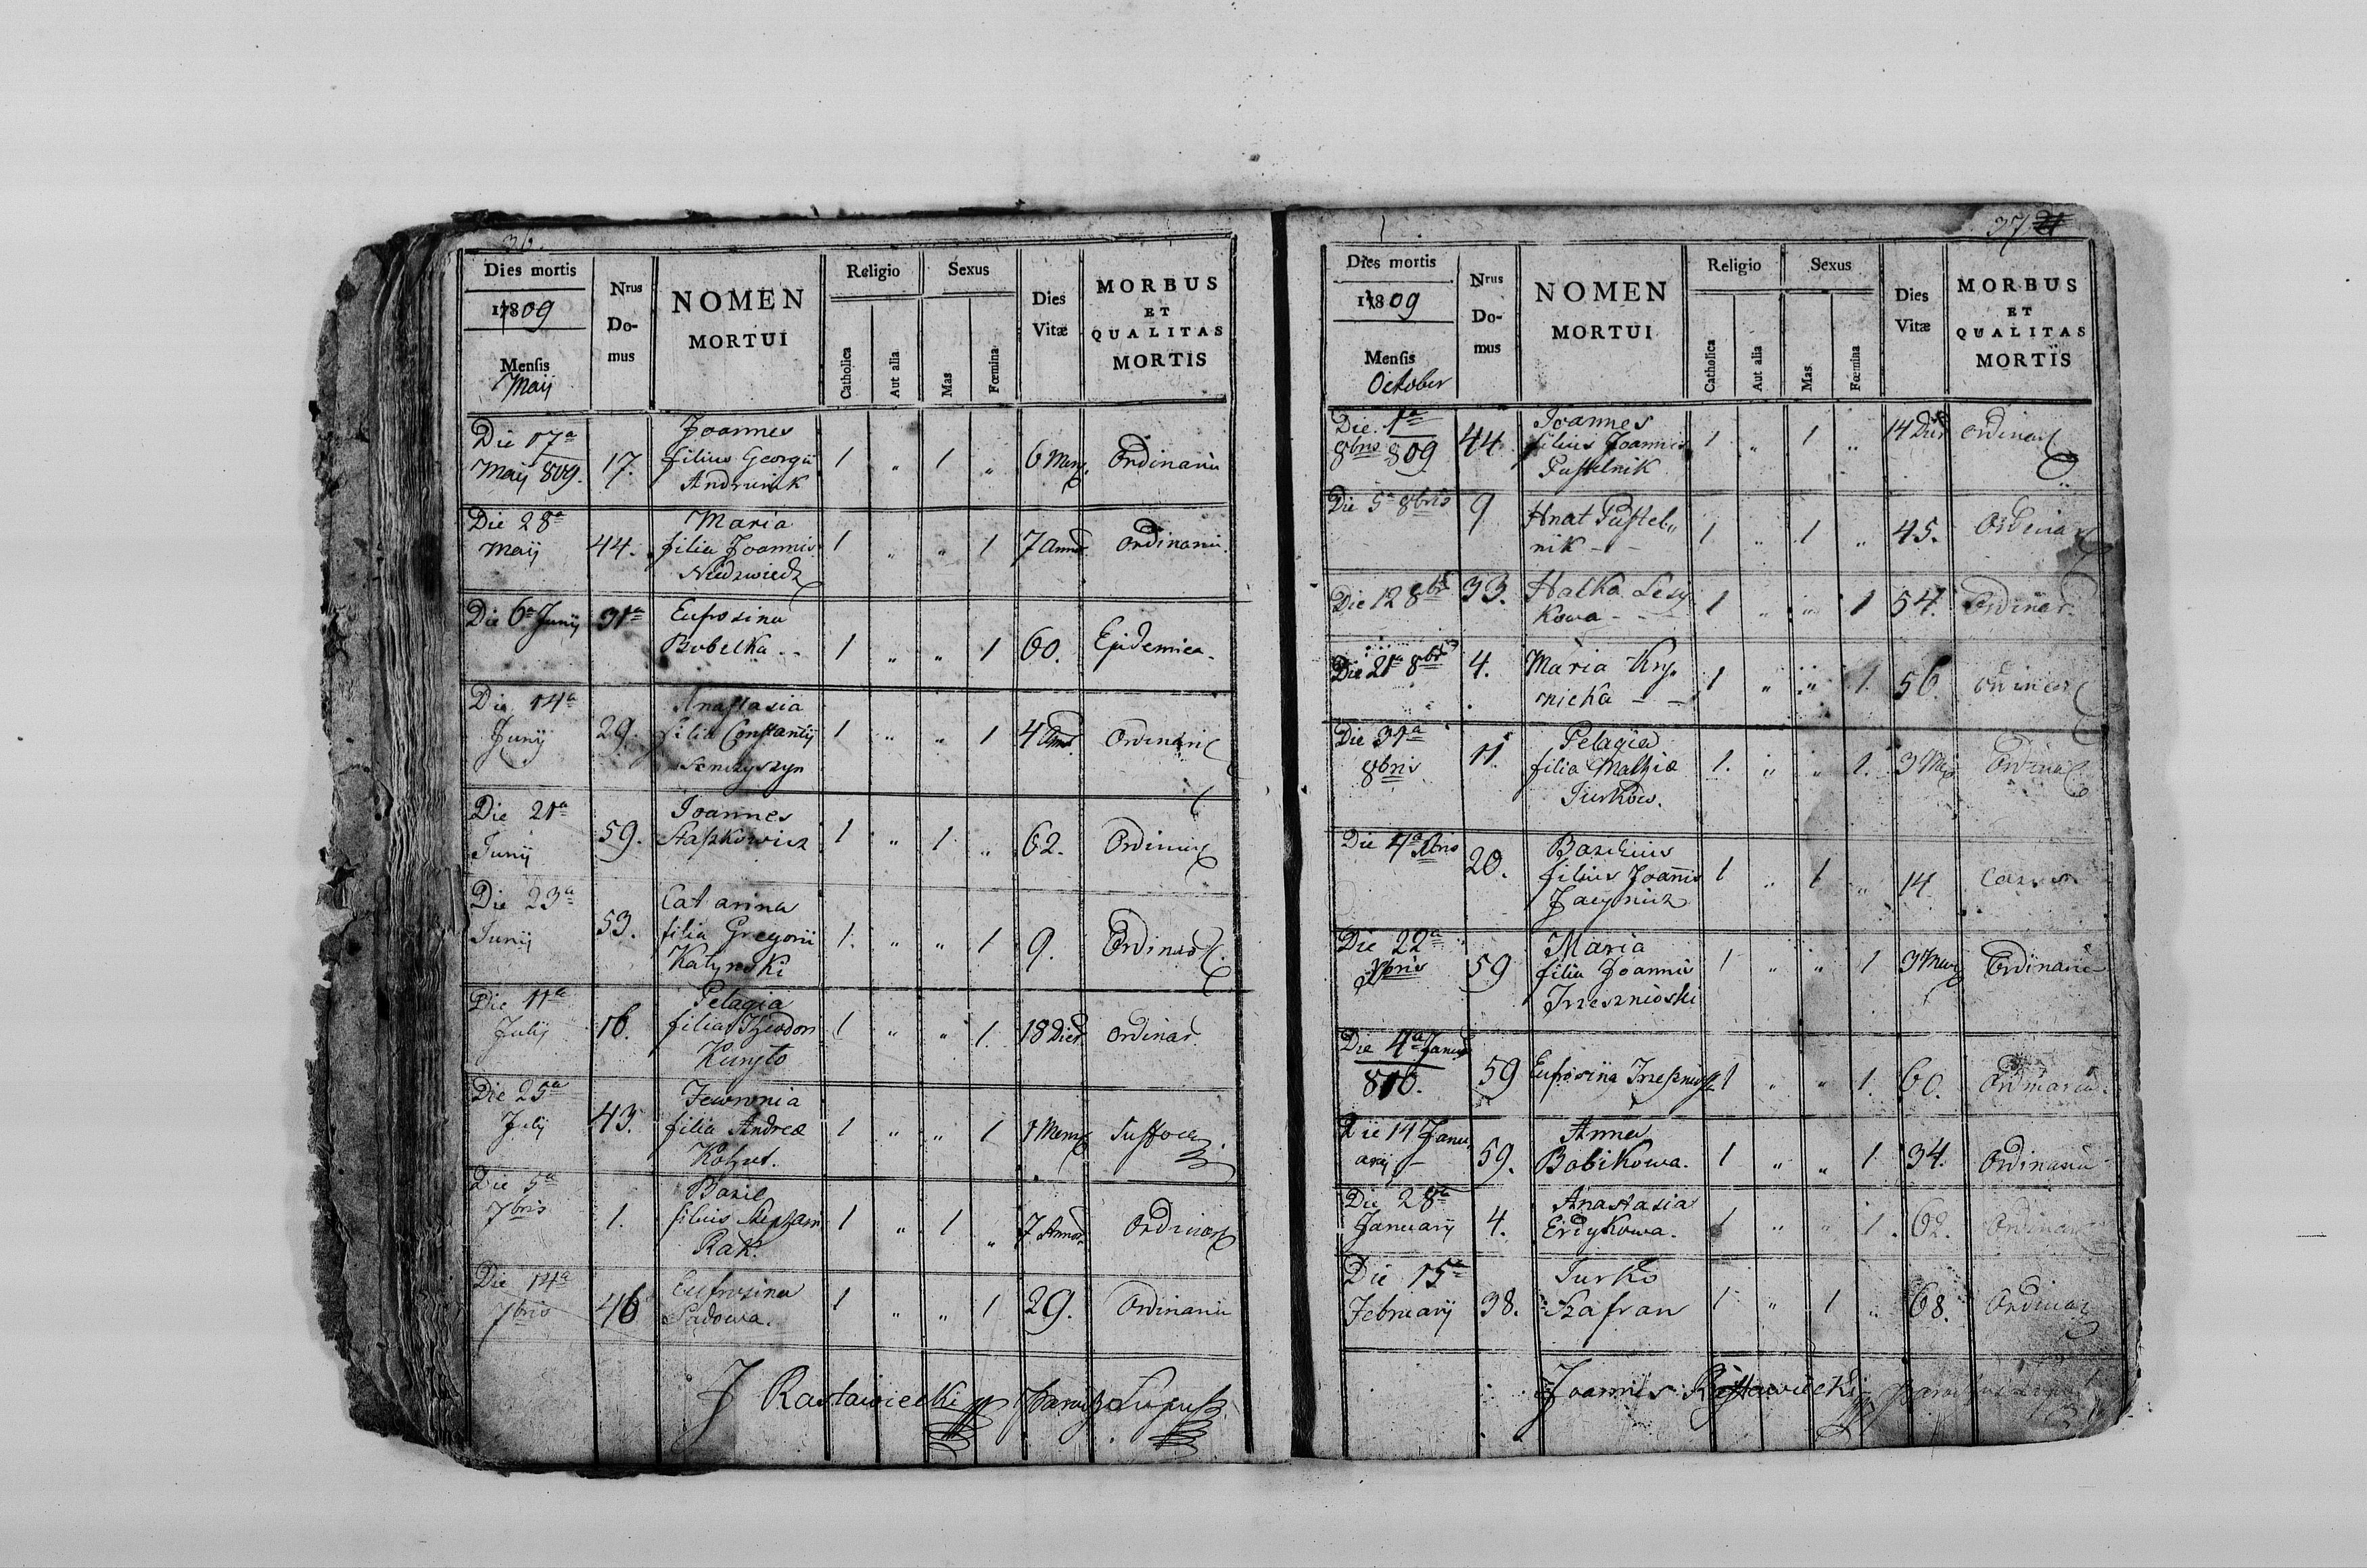 36.
Dies mortis
1809
Mensis
Maij
Nrus
Do-
mus
NOMEN
MORTUI
Religio
Catholica
Aut alia
Sexus
Mas
Fœmina
Dies
Vitæ
MORBUS
ET
QUALITAS
MORTIS
Die 17a
Maij 809.
17.
Joannes
filius Georgii
Andruiak
1 " 1 "
6 Mens
Ordinaria
Die 28a
Maij
44.
Maria
filia Joannis
Niedzwiedz
1 " " 1
7 Anno
Ordinaria.
Die 6a Junij
31a
Eufrosina
Bobelka - -
1 " " 1
60.
Epidemica.
Die 14a
Junij
29.
Anastasia
filia Constantij
Senczyszyn
1 " " 1
4 Ann
Ordinari
Die 21a
Junij
59.
Joannes
Staszkowicz
1 " 1 "
62.
Ordinar
Die 23a
Junij
53.
Catarina
filia Gregorii
Katynski
1. " " 1
9.
Ordinar
Die 11a
Julij
16.
Pelagia
filia Theodori
1 " " 1
18 Dies
Ordinar.
Die 25a
Julij
43.
Fewronia
filia Andreæ
Kohut.
1 " " 1
1 Mens
Suffoca
Die 5a
7bris
1.
Bazil
filius Stephani
Rak.
1 " 1 "
7 Annor
Ordinar
Die 14a
7bris
46
Eufrosina
Sadowa.
1 " " 1
29.
Ordinaria
J Rastawiecki
37 21
Dies mortis
1809
Mensis
October
Nrus
Do-
mus
NOMEN
MORTUI
Religio
Catholica
Aut alia
Sexus
Mas
Fœmina
Dies
Vitæ
MORBUS
ET
QUALITAS
MORTIS
Die 1a
8bris 809
44
Joannes
filius Joannis
Pustelnik
1 " 1 "
14 Dier
Ordinar
Die 5a 8bris
9
Hnat Pustel"
nik - -
1 " 1 "
45.
Ordinar
Die 12 8br
33.
Halka Lesy
kowa - - -
1 " " 1
54.
Ordinar.
Die 21a 8br
4.
Maria Kry-
nicka - -
1 " " 1.
56.
Ordinar
Die 31a
8bris
11
Pelagia
filia Mathiæ
Jurkow.
1. " " 1.
3 Mens
Ordinar
Die 4a
20.
Bazilius
filius Joannis
1 " 1 "
14
Die 22a
59
Maria
filia Joannis
Trzesznioski
1 " " 1
3 Mens
Ordinaria
Die 4a Januar
810.
59
Eufrosina
1 " " 1.
60.
Ordinaria.
Die 14 Janu
arij -
59.
Anna
Bobikowa.
1 " " 1
34.
Ordinaria
Die 28a
Januarij
4.
Anastasia
Erdykowa.
1 " " 1.
62.
Ordinar
Die 15a
Februarij
38.
Jurko
Szafran
1 " 1 "
68.
Ordinar
Joannes Rastawiecki